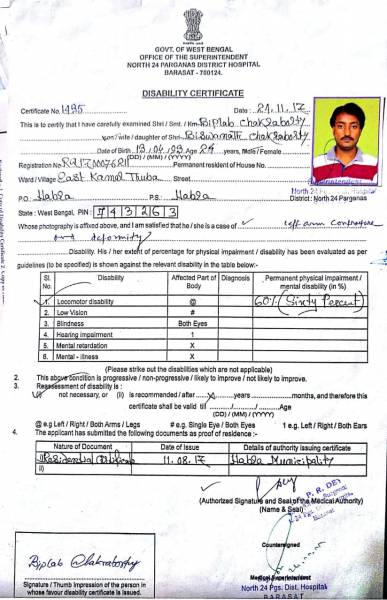 GOVT. OF WEST BENGAL
OFFICE OF THE SUPERINTENDENT
NORTH 24 PARGANAS DISTRICT HOSPITAL
BARASAT - 700124.
DISABILITY CERTIFICATE
Certificate No. 1495 Date : 21.11.17
This is to certify that I have carefully examined Shri / Smt. / Km. Biplab Chakraborty
son / wife / daughter of Shri Biswanath Chakraborty
Date of Birth 13.04.93 Age 24 years, Male / Female
(DD) / (MM) / (YYYY)
Registration No. Permanent resident of House No.
Ward / Village East Kamal Thuba Street
P.O. Habra P.S. Habra District : North 24 Parganas
State : West Bengal, PIN : 743263
Superintendent
North 24 Pgs. Dist. Hospital
Whose photography is affixed above, and I am satisfied that he / she is a case of left arm contracture
and deformity
Disability. His / her extent of percentage for physical impairment / disability has been evaluated as per
guidelines (to be specified) is shown against the relevant disability in the table below:-
Sl. No. Disability Affected Part of Body Diagnosis Permanent physical impairment / mental disability (in %)
1. Locomotor disability @ 60% (Sixty Percent)
2. Low Vision #
3. Blindness Both Eyes
4. Hearing impairment 1
5. Mental retardation X
6. Mental - illness X
(Please strike out the disabilities which are not applicable)
2. This above condition is progressive / non-progressive / likely to improve / not likely to improve.
3. Reassessment of disability is :
(i) not necessary, or (ii) is recommended / after years months, and therefore this
certificate shall be valid till Age
(DD) / (MM) / (YYYY)
@ e.g Left / Right / Both Arms / Legs # e.g. Single Eye / Both Eyes 1 e.g. Left / Right / Both Ears
4. The applicant has submitted the following documents as proof of residence :-
Nature of Document Date of Issue Details of authority issuing certificate
Residential 11.08.17 Habra Municipality
ii)
(Authorized Signature and Seal of the Medical Authority)
(Name & Seal)
P. R. DEY
Countersigned
Biplab Chakraborty
Signature / Thumb Impression of the person in
whose favour disability certificate is issued.
Medical Superintendent
North 24 Pgs. Dist. Hospital
BARASAT